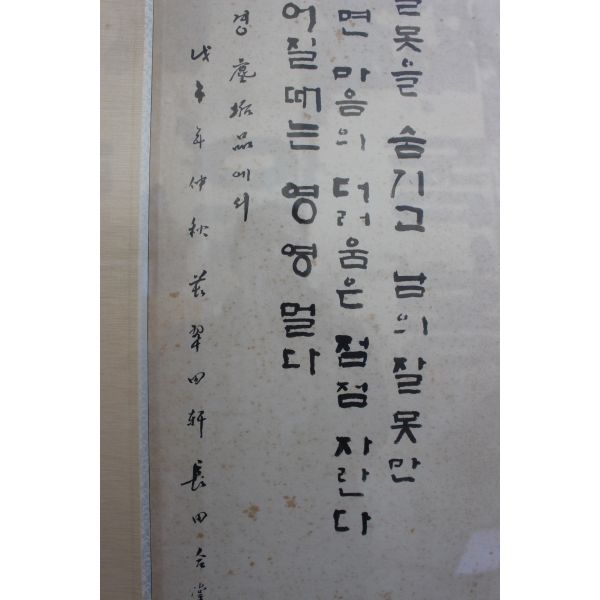 못을 숨기고 남의 잘못만
면 마음의 더러움은 점점 자란다
어질 때는 영영 멀다
경 塵垢品에서
戊午年仲秋 於翠田軒 長田